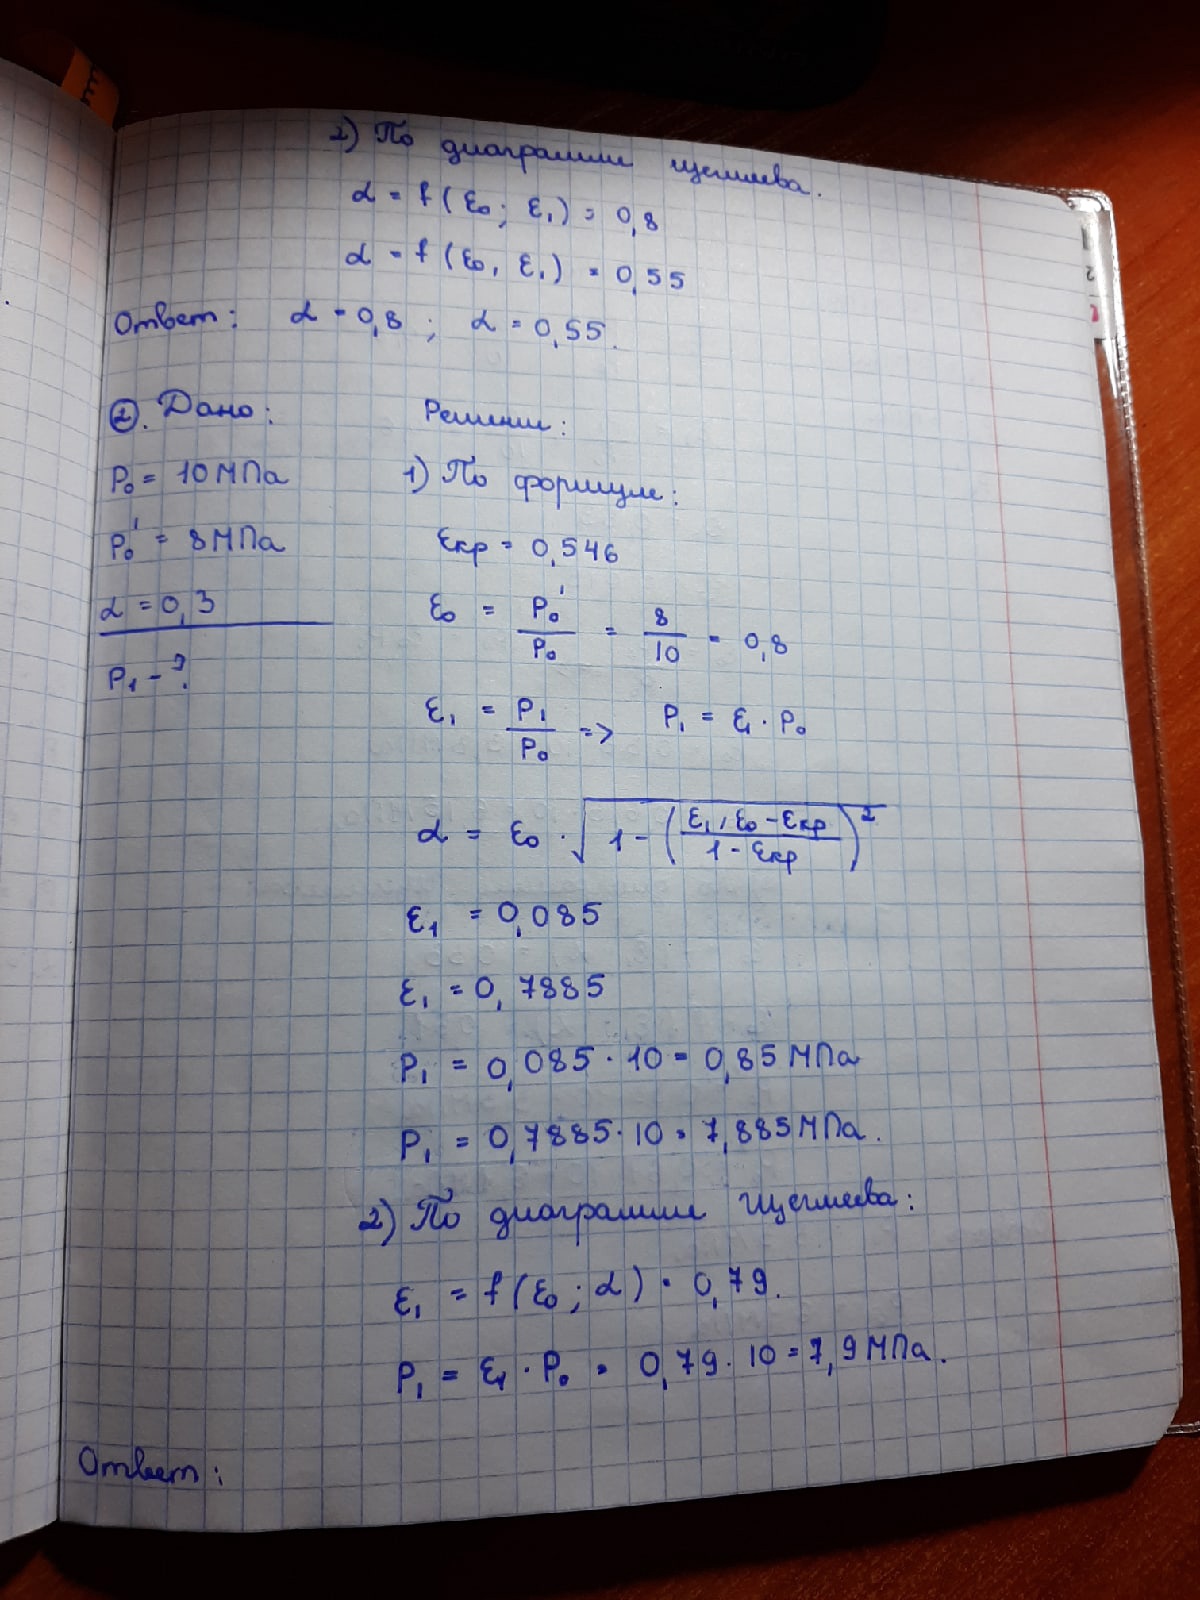 2) По диаграмме Щегляева.
α = f(ε₀; ε₁) = 0,8
α = f(ε₀, ε₁) = 0,55
Ответ: α = 0,8 ; α = 0,55.
②. Дано: Решение:
P₀ = 10 МПа 1) По формуле:
P₀' = 8 МПа εкр = 0,546
α = 0,3 ε₀ = P₀'/P₀ = 8/10 = 0,8
P₁ - ?
ε₁ = P₁/P₀ => P₁ = ε₁ · P₀
α = ε₀ · √(1 - ((ε₁/ε₀ - εкр)/(1 - εкр))²)
ε₁ = 0,085
ε₁ = 0,7885
P₁ = 0,085 · 10 = 0,85 МПа
P₁ = 0,7885 · 10 = 7,885 МПа.
2) По диаграмме Щегляева:
ε₁ = f(ε₀; α) = 0,79.
P₁ = ε₁ · P₀ = 0,79 · 10 = 7,9 МПа.
Ответ: